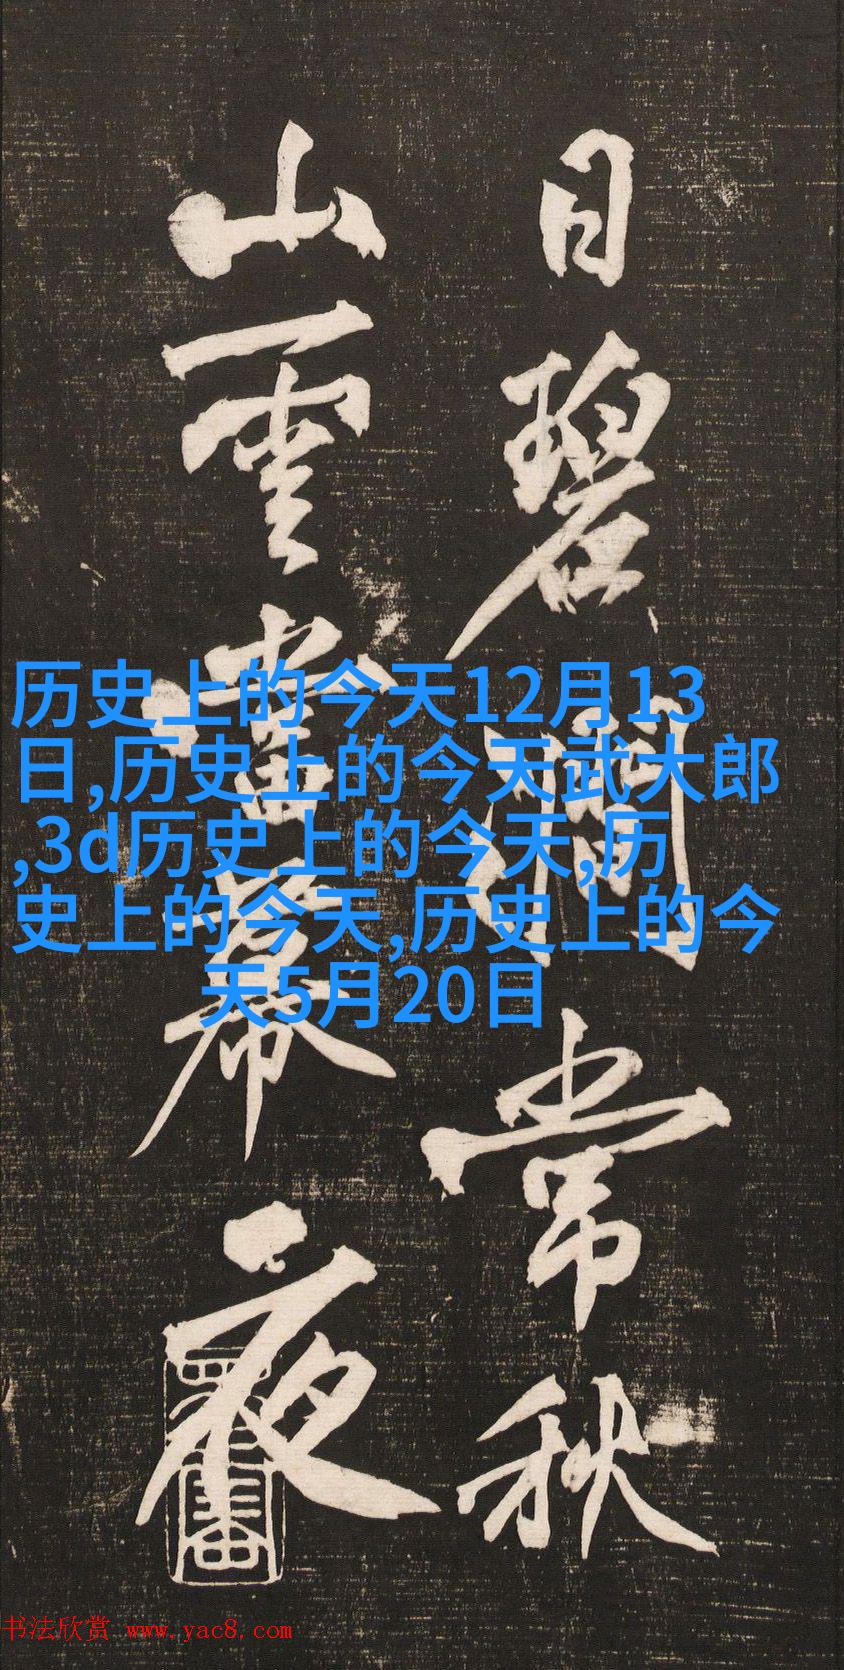 日碧澗常秋
山雲當幕夜
历史上的今天12月13
日,历史上的今天武大郎
,3d历史上的今天,历
史上的今天,历史上的今
天5月20日
书法欣赏 www.yac8.com